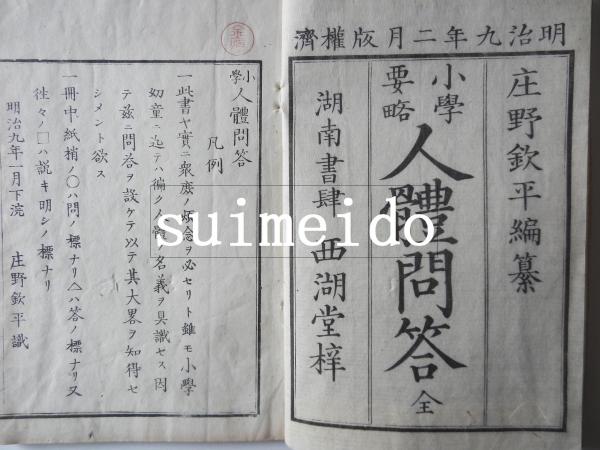 明治九年二月版權濟
庄野欽平編纂
小學
要略
人體問答 全
湖南書肆 西湖堂梓
小學
人體問答
凡例
一此書ヤ實ニ衆庶ノ 念ヲ必セリト雖モ小學
幼童ニ迄テハ徧ク人體ノ名義ヲ具識セス因
テ玆ニ問答ヲ設ケテ以テ其大畧ヲ知得セ
シメント欲ス
一冊中紙梢ノ〇ハ問ノ標ナリ△ハ答ノ標ナリ又
徃々ノ□ハ説キ明シノ標ナリ
明治九年一月下浣 庄野欽平識
suimeido